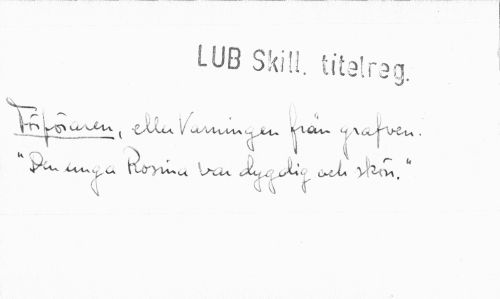 LUB Skill. titelreg.
Förföraren, eller Varningen från grafven.
"Den unga Rosina var dygdig och skön."